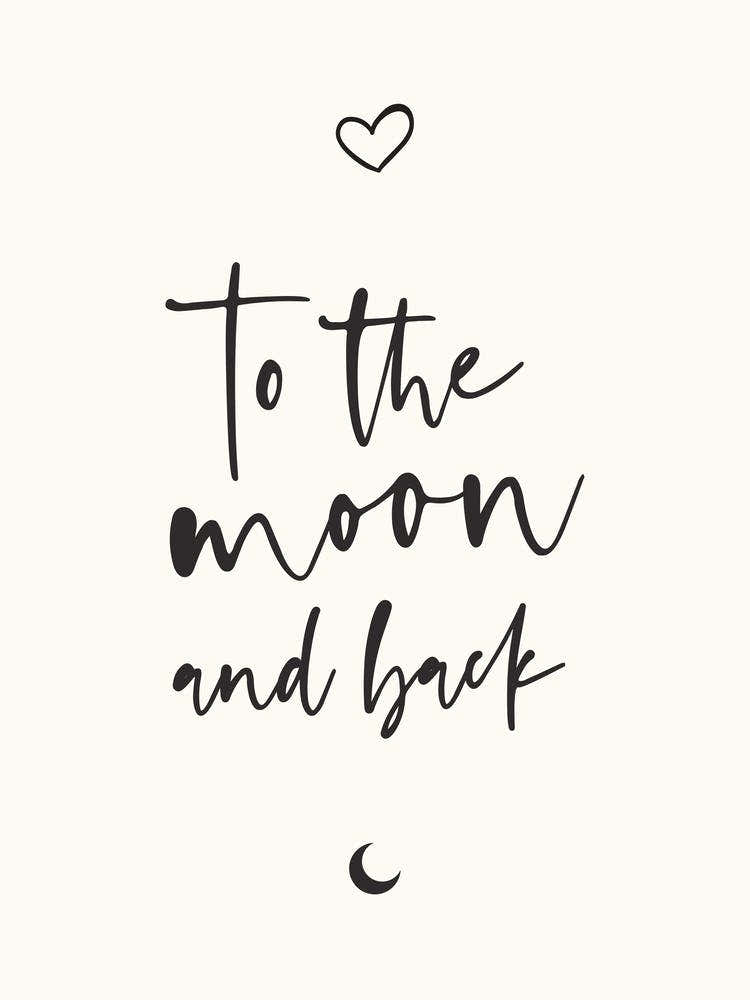 To the
moon
and back